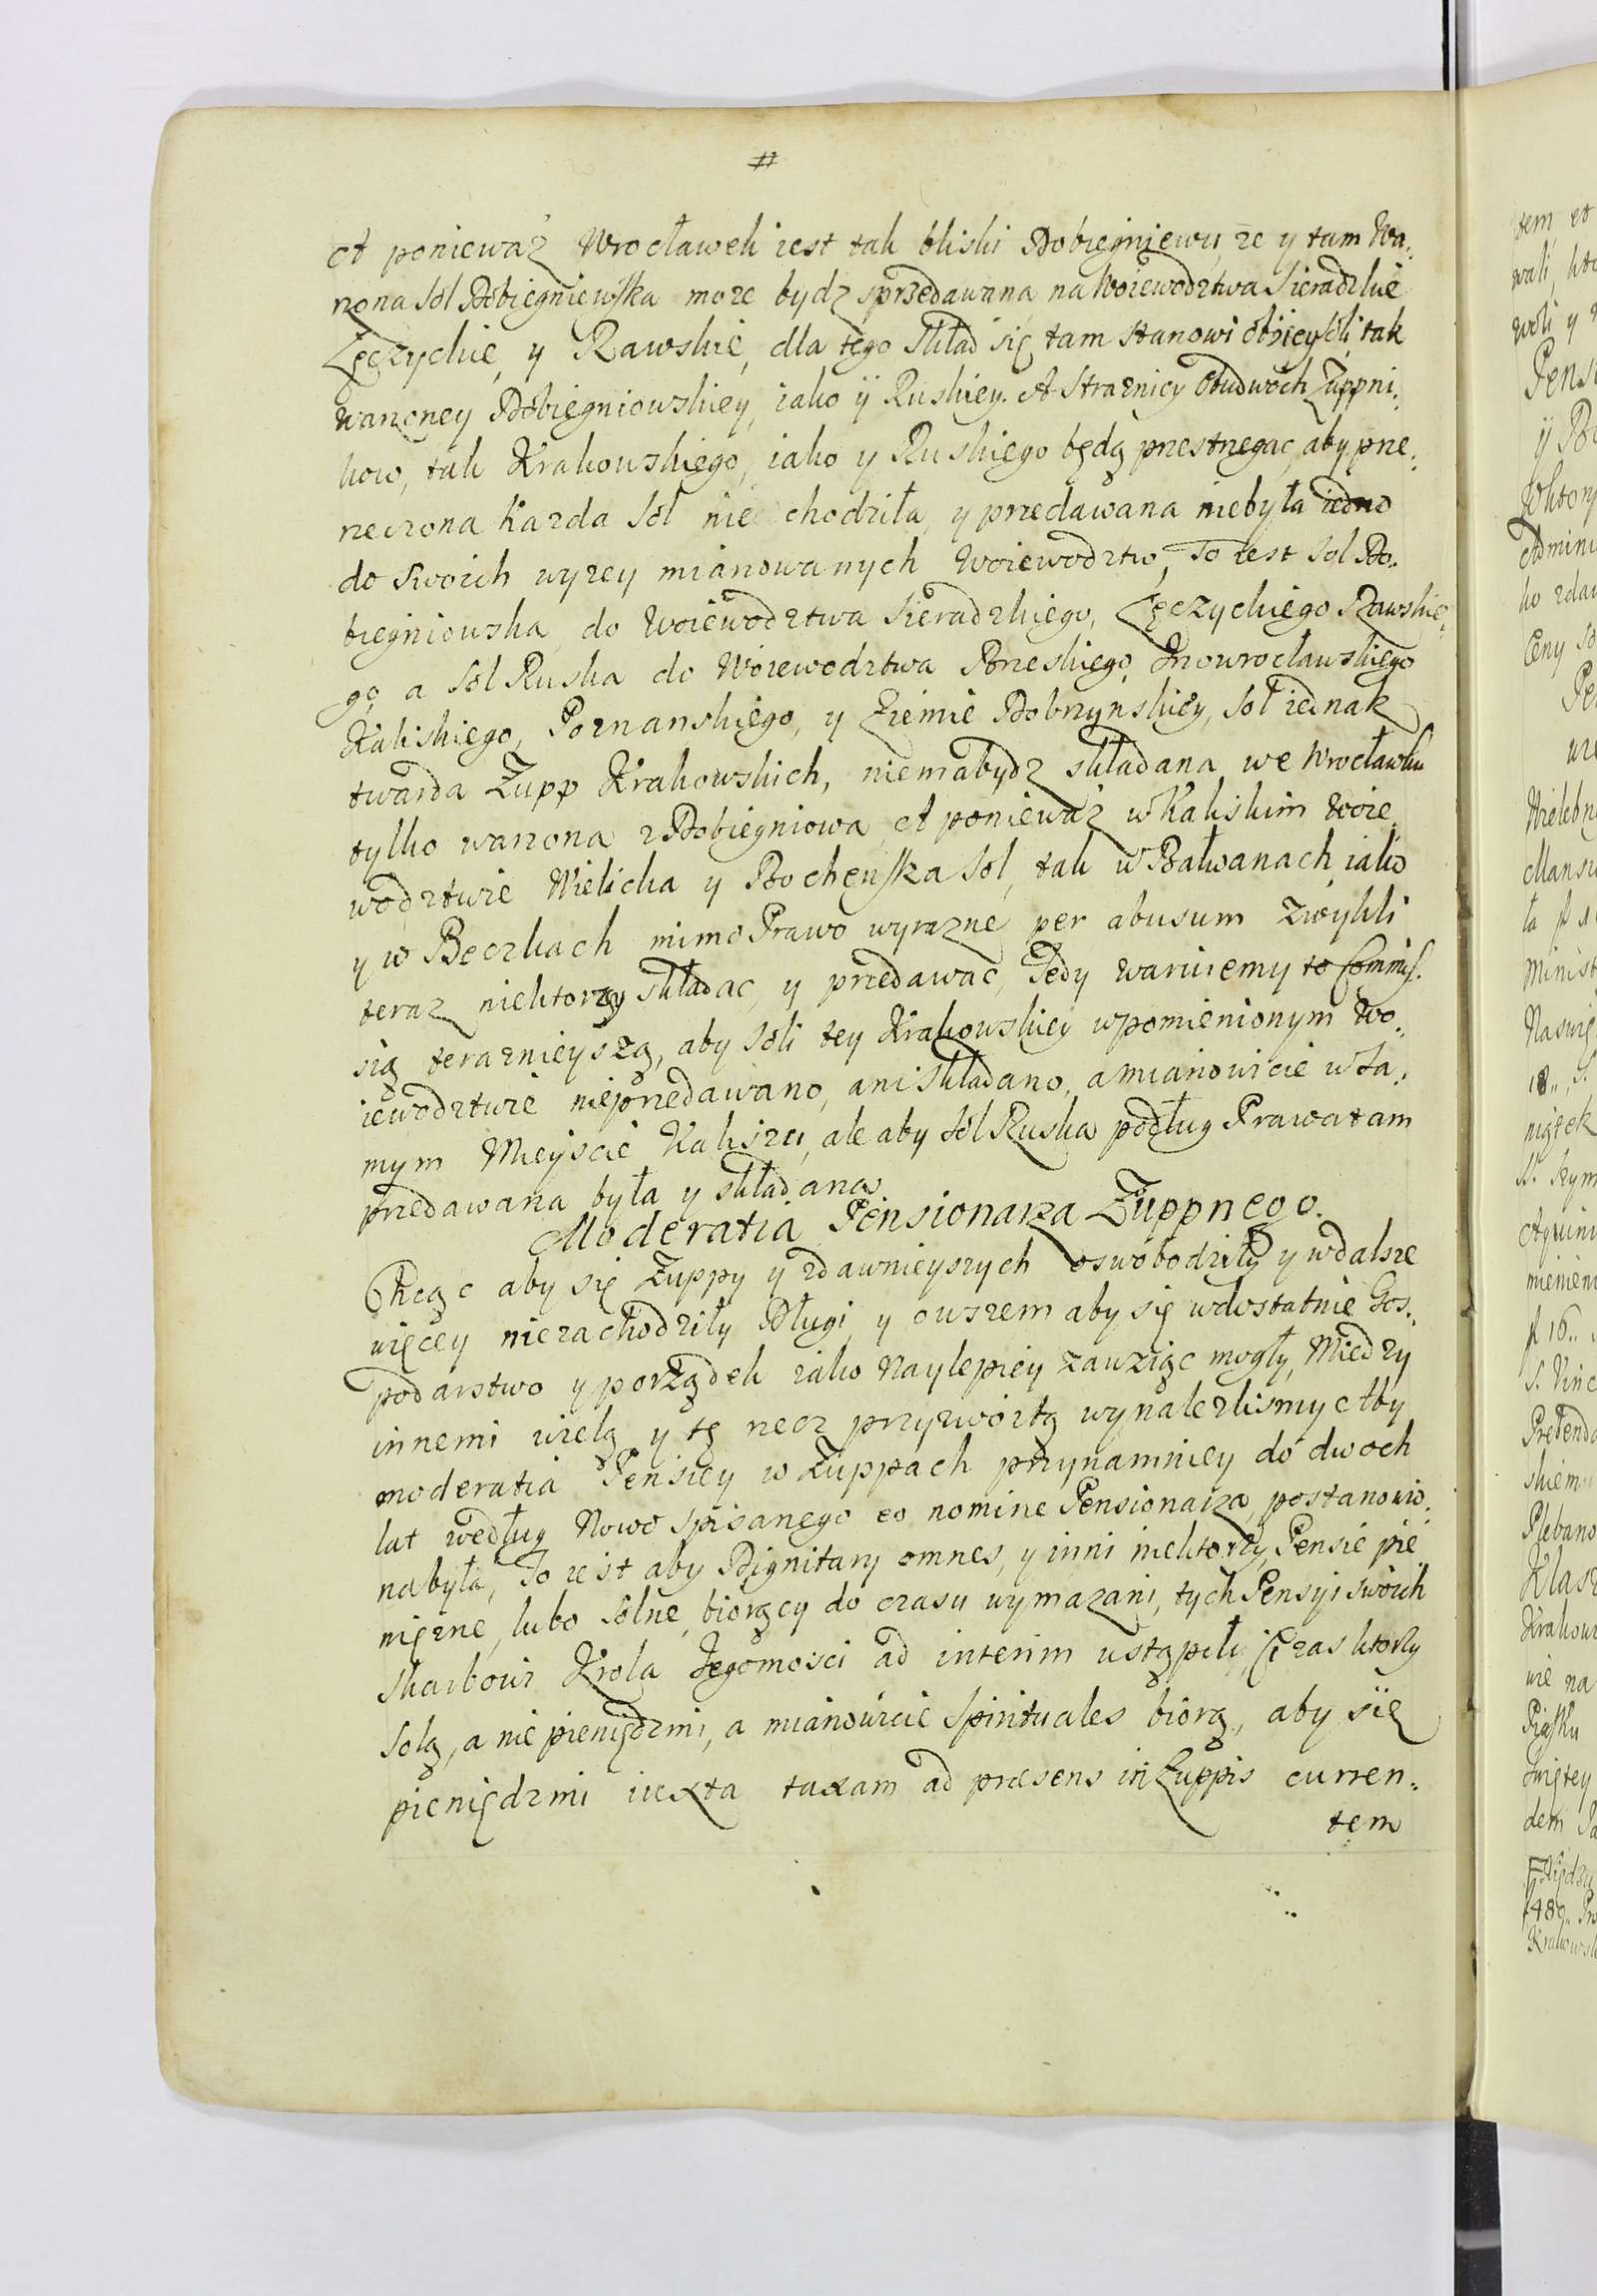 #
A poniewaz Wrocławek iest tak bliski Dobiegniewu, ze y tam Wa..
rzona Sol Dobiegniewska moze bydz sprzedawana na Woiewodztwa Sieradzkie
Łęczyckie, y Rawskie, dla tego skład się tam stanowi obiey Soli, tak
warzoney Dobiegniowskiey, iako ÿ Ruskiey. A Straznicy Obudwoch Zuppni..
kow, tak Krakowskiego, iako y Ruskiego będą przestrzegac, aby prze..
rzeczona kazda Sol nie chodziła, y przedawana niebyła iedno
do swoich wyzey mianowanych Woiewodztw, To iest Sol Do..
biegniowska do Woiewodztwa Sieradzkiego, Łęczyckiego Rawskie..
go, a Sol Ruska do Woiewodztwa Brzeskiego, Inowrocławskiego
Kaliskiego, Poznanskiego, y Ziemie Dobrzynskiey, Sol iednak
twarda Zupp Krakowskich, niema bydz składana we Wrocławku
tylko warzona z Dobiegniowa, A poniewaz w Kaliskim Woie..
wodztwie Wielicka y Bochenska Sol, tak w Bałwanach, iako
y w Beczkach mimo Prawo wyrazne per abusum zwykli
teraz niektorzy składac, y przedawac, Tedy waruiemy to Commis..
sią terazniejszą, aby Soli tey Krakowskiey wpomienionym Wo..
iewodztwie nieprzedawano, ani składano, a mianowicie w sa..
mym Miejscie Kaliszu, ale aby Sol Ruska podług Prawa tam
przedawana była y składana
Moderatia Pensionarza Zuppnego.
Chcąc aby się Zuppy y zdawnieyszych oswobodziły y wdalsze
więcey niezachodziły Długi, y owszem aby się wdostatnie Gos..
podarstwo y porządek iako Naylepiey zawziąc mogły, Miedzy
innemi wielą y tę rzecz przyzwoitą wynalezlismy Aby
moderatia Pensiey w Zuppach przynamniey do dwoch
lat według Nowo Spisanego eo nomine Pensionarza, postanowio..
na była, To iest aby Dignitarij omnes, y inni niektorzy, Pensie pie
niężne, lubo Solne, biorący do czasu wymazani, tych Pensyi swoich
Skarbowi Krola Jegomosci ad interim ustąpili, Ci zas ktorzy
Solą, a nie pieniędzmi, a mianowicie Spirituales biorą, aby się
pieniędzmi iuxta taxam ad præsens in Zuppis curren..
tem